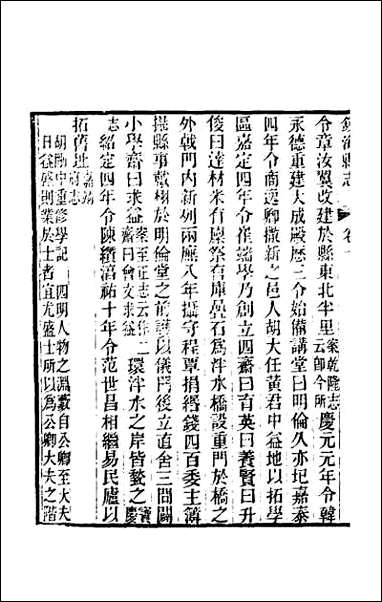 鎮海縣志 卷十
令章汝翼改建於縣東北半里案乾隆志云即今所慶元元年令韓
永德重建大成殿歷三令始備講堂曰明倫久亦圮嘉泰
四年令商逸卿撤新之邑人胡大任黃君中益地以拓學
區嘉定四年令崔端學乃創立四齋曰育英曰養賢曰升
俊曰達材米有廩祭有庫疊石爲泮水橋設重門於橋之
外戟門內新列兩廡八年攝守程覃捐緡錢四百委主簿
攝縣事戴栩於明倫堂之前護以儀門後立直舍三間闢
小學齋曰求益案至正志云作二齋曰會文求益環泮水之岸皆甃之寶慶
志紹定四年令陳纘淳祐十年令范世昌相繼易民廬以
拓舊址嘉靖府志
胡剛中重修學記 四明人物之淵藪自公卿至大夫
日益盛則業於士者宜尤盛士所以爲公卿大夫之階